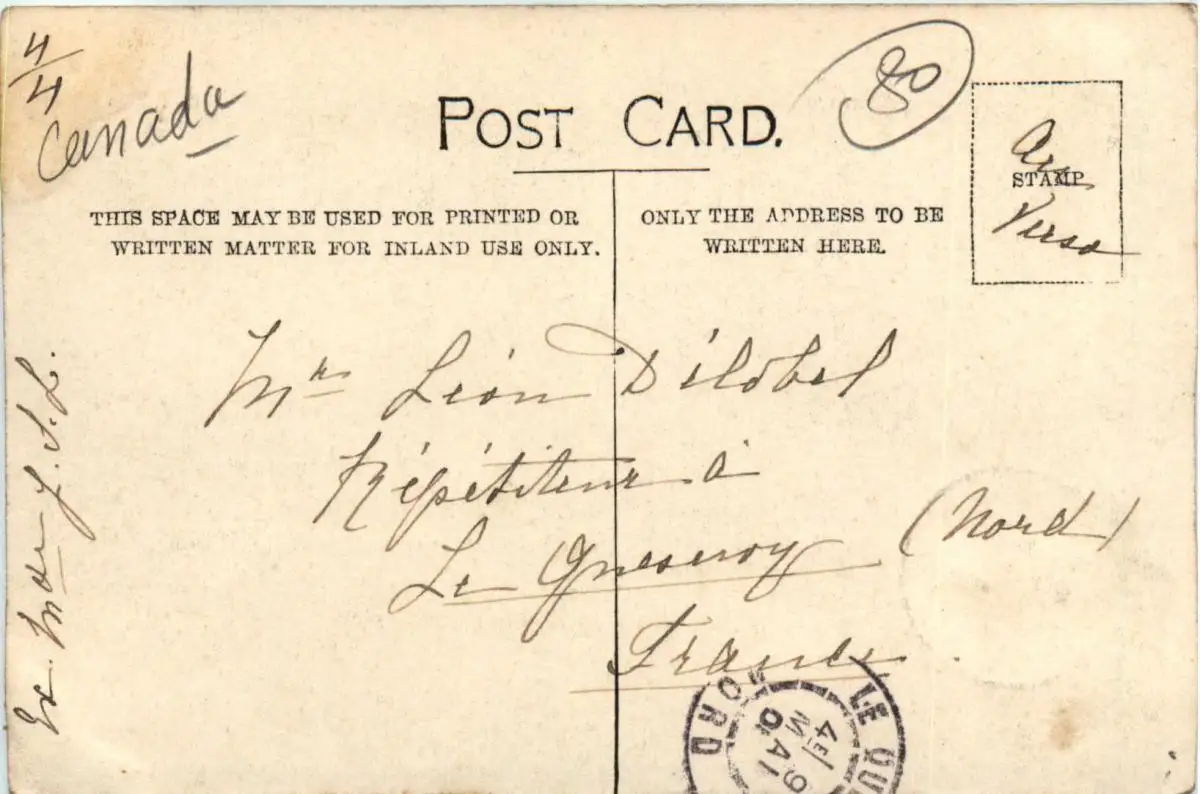 4/4
Canada
80
POST CARD.
THIS SPACE MAY BE USED FOR PRINTED OR
WRITTEN MATTER FOR INLAND USE ONLY.
ONLY THE ADDRESS TO BE
WRITTEN HERE.
STAMP
Verso
Mr Léon Délobel
Répétiteur à
Le Quesnoy (Nord)
France
LE QU
ORD
4E/9
MAI